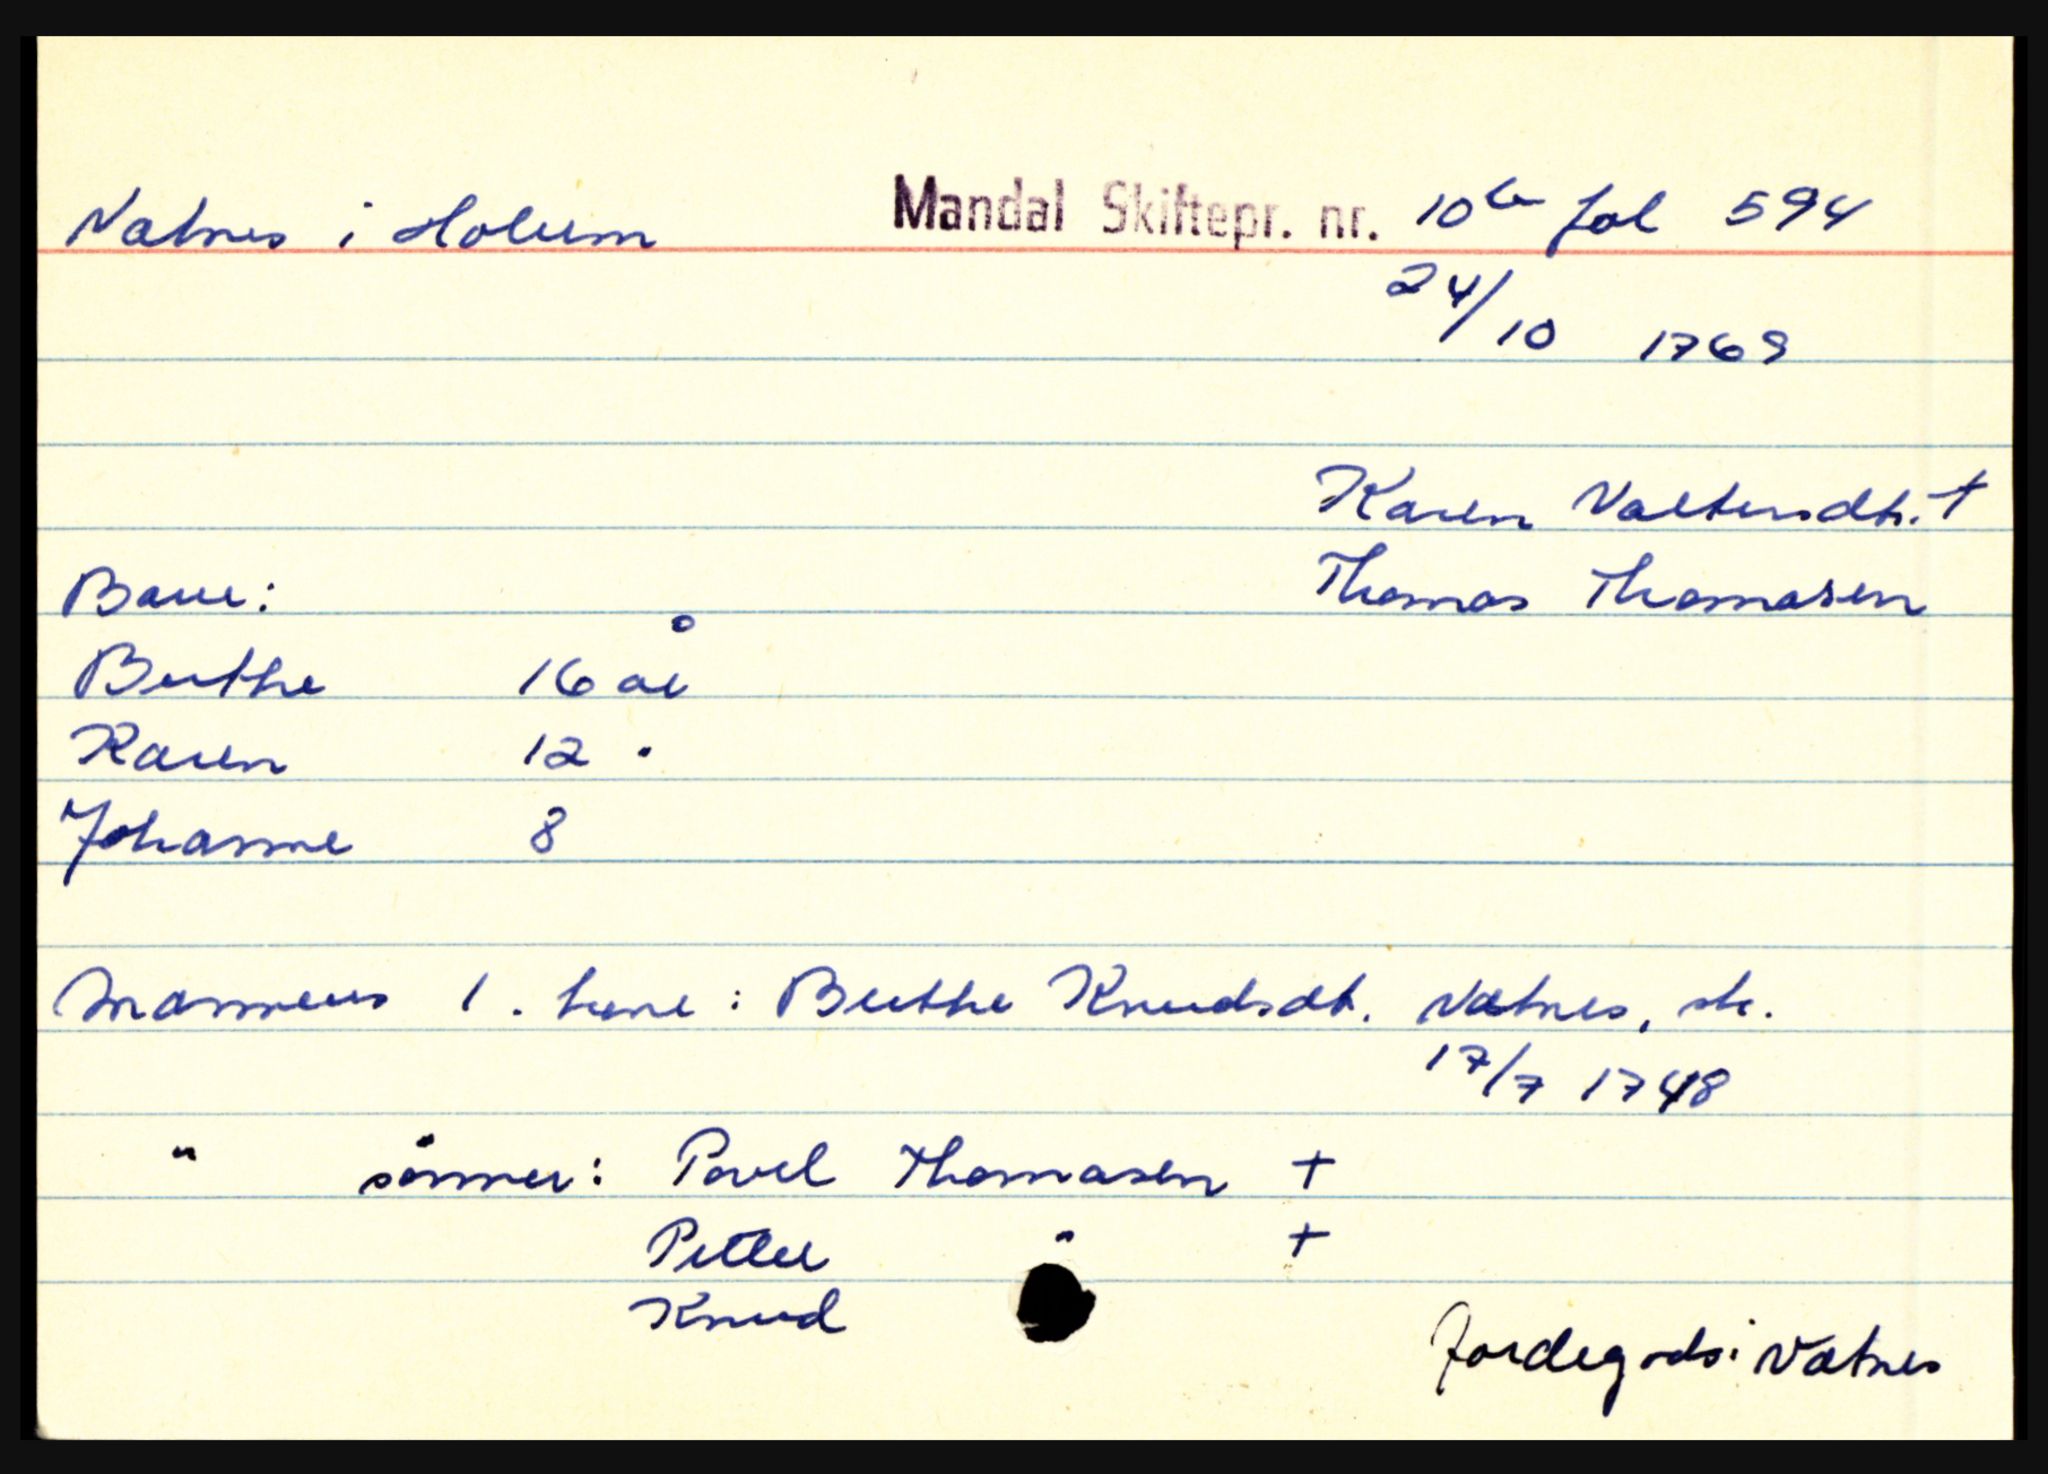 Vatnes i Holum Mandal Skiftepr. nr. 10b fol 594
24/10 1769
Karen Valtersdtr. +
Thomas Thomasen
Barn:
Berthe 16 år
Karen 12 "
Johanne 8
Mannens 1. kone: Berthe Knudsdt. Vatnes, sk.
17/7 1748
" sønner: Povel Thomasen +
Petter " +
Knud
Jordegods i Vatnes